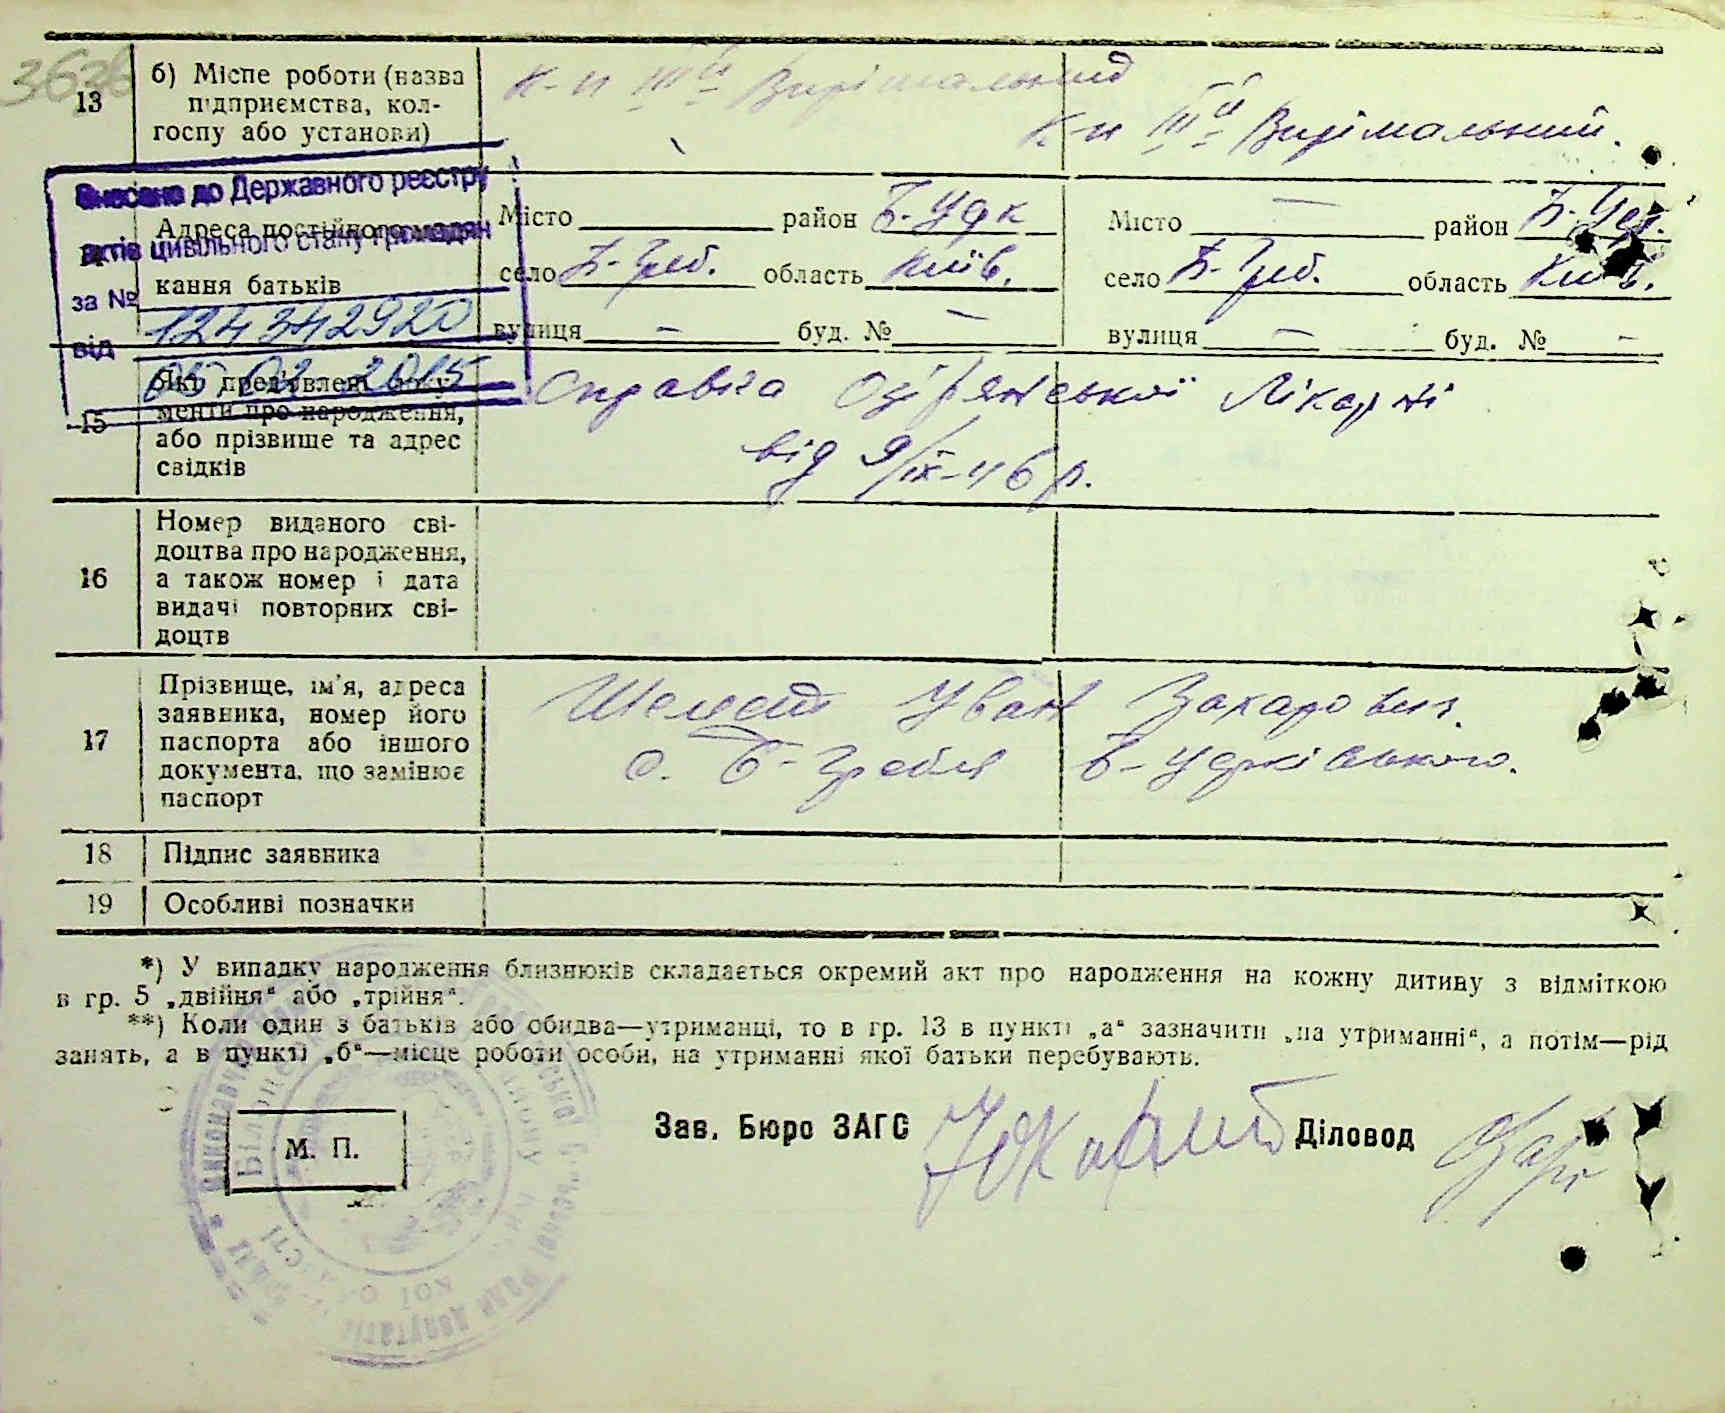 13 б) Місце роботи (назва
підприємства, кол-
госпу або установи)
К-п ІІІ й Вирішальний
К-п ІІІ й Вирішальний.
Внесено до Державного реєстру
актів цивільного стану громадян
за № 124342920
від 05 02 2015
Адреса постійного
кання батьків
Місто район Б-Удк
село Б-Греб. область Київ.
вулиця — буд. № —
Місто — район Б-Уд.
село Б-Греб. область Київ.
вулиця — буд. № —
15 Які пред'явлені доку-
менти про народження,
або прізвище та адрес
свідків
Справка Озірянської Лікарні
від 9/ІХ-46 р.
16 Номер виданого сві-
доцтва про народження,
а також номер і дата
видачі повторних сві-
доцтв
17 Прізвище, ім'я, адреса
заявника, номер його
паспорта або іншого
документа, що замінює
паспорт
Шелест Іван Захарович.
с. Б-Гребля Б-Удківського.
18 Підпис заявника
19 Особливі позначки
*) У випадку народження близнюків складається окремий акт про народження на кожну дитину з відміткою
в гр. 5 „двійня“ або „трійня“.
**) Коли один з батьків або обидва—утриманці, то в гр. 13 в пункті „а“ зазначити „на утриманні“, а потім—рід
занять, а в пункті „б“—місце роботи особи, на утриманні якої батьки перебувають.
М. П.
Зав. Бюро ЗАГС Діловод